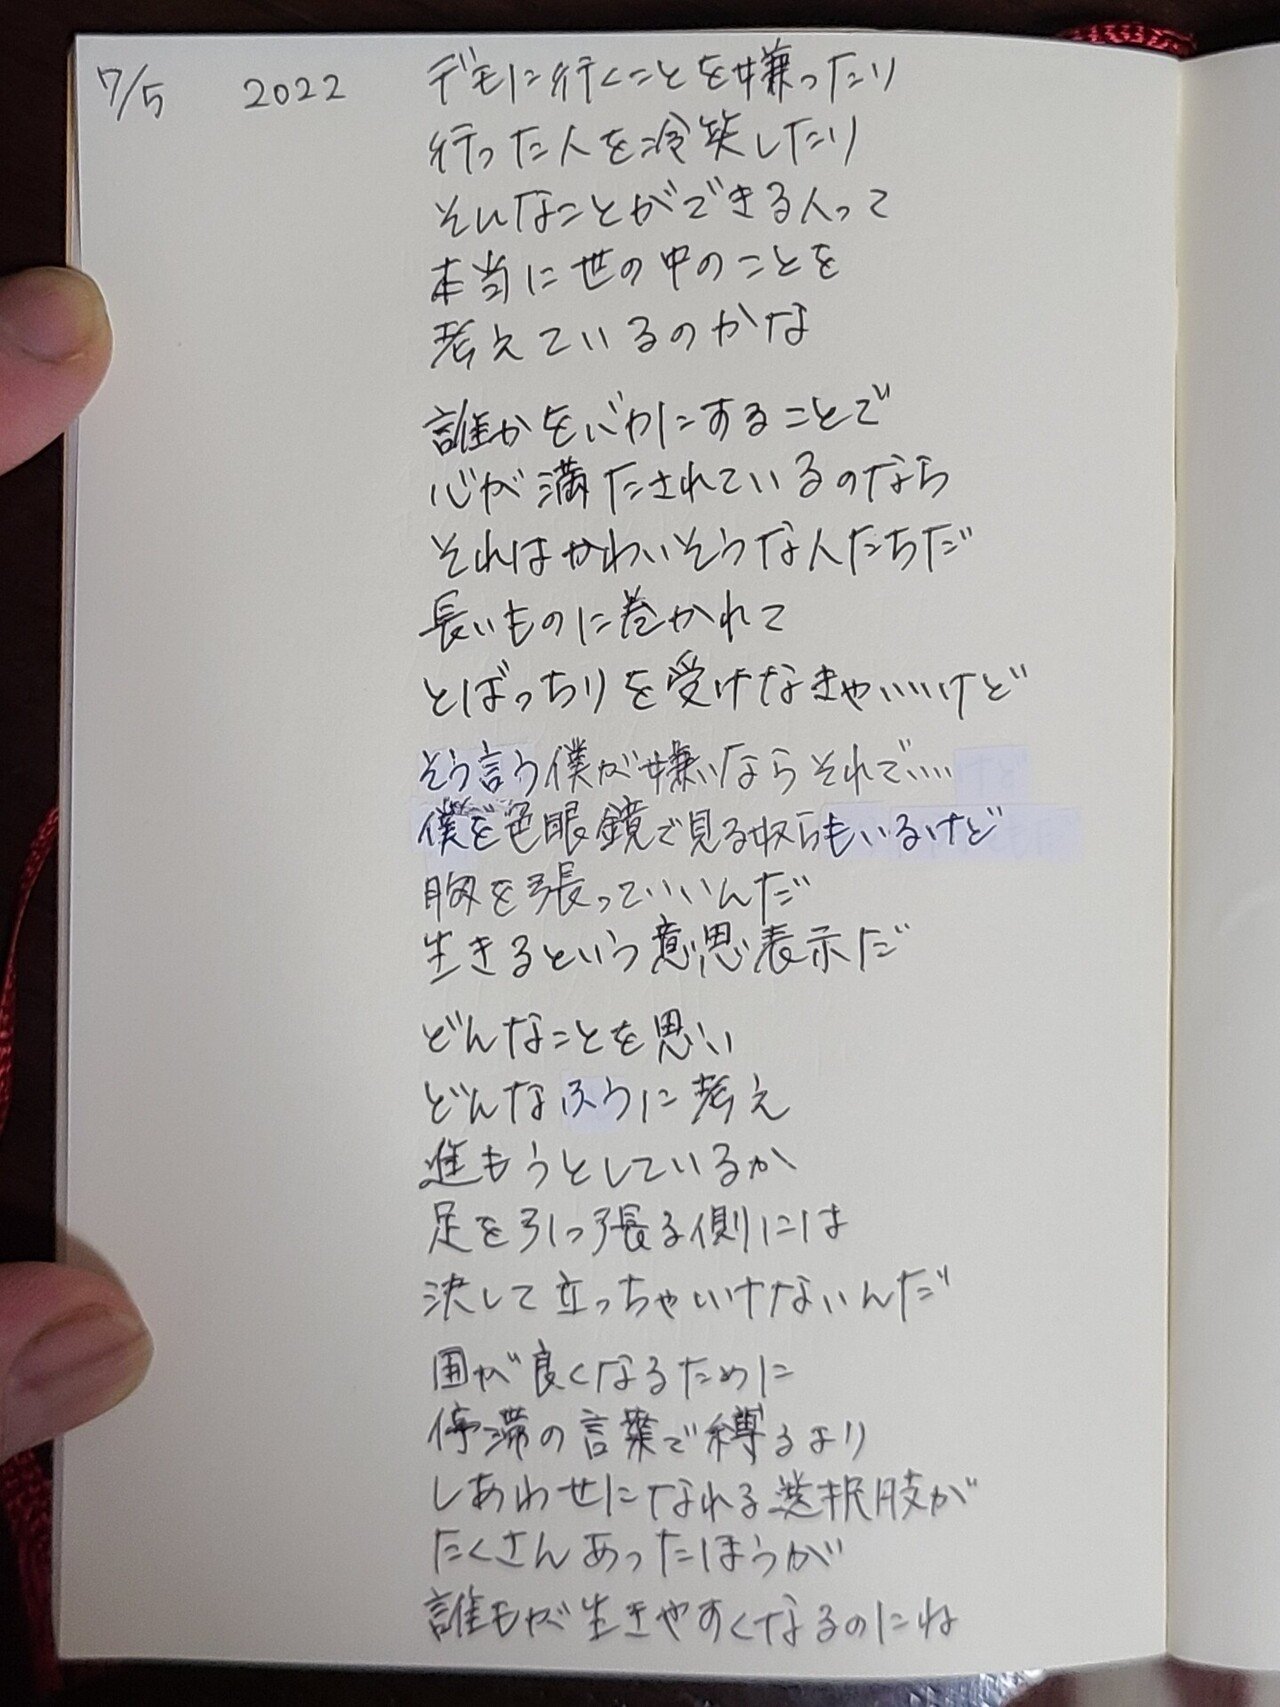 7/5 2022
デモに行くことを嫌ったり
行った人を冷笑したり
そんなことができる人って
本当に世の中のことを
考えているのかな
誰かをバカにすることで
心が満たされているのなら
それはかわいそうな人たちだ
長いものに巻かれて
とばっちりを受けなきゃいいけど
そう言う僕が嫌いならそれでいい
僕を色眼鏡で見る奴らもいるけど
胸を張っていいんだ
生きるという意思表示だ
どんなことを思い
どんなふうに考え
進もうとしているか
足を引っ張る側には
決して立っちゃいけないんだ
国が良くなるために
停滞の言葉で縛るより
しあわせになれる選択肢が
たくさんあったほうが
誰もが生きやすくなるのにね